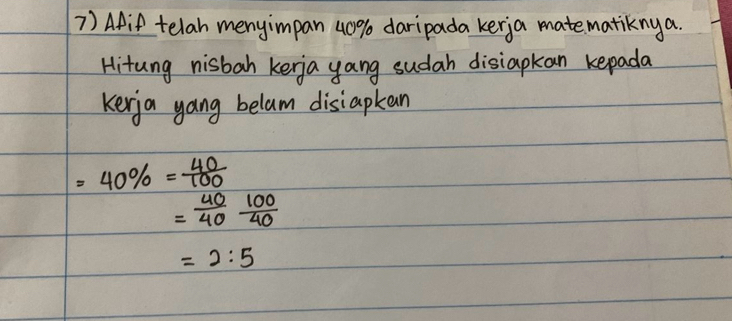 7) Afif telah menyimpan 40% daripada kerja matematiknya.
Hitung nisbah kerja yang sudah disiapkan kepada
kerja yang belum disiapkan
= 40% = 40/100
= 40/40 100/40
= 2:5